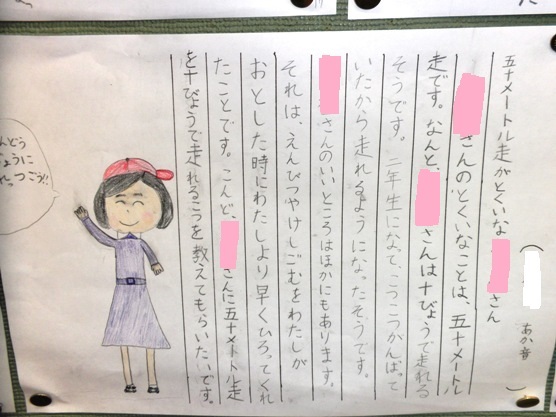 五十メートル走がとくいな
さん
(
あか音)
さんのとくいなことは、五十メートル
走です。なんと、
さんは十びょうで走れる
そうです。二年生になって、こつこつがんばって
いたから走れるようになったそうです。
さんのいいところはほかにもあります。
それは、えんぴつやけしごむをわたしが
おとした時にわたしより早くひろってくれ
たことです。こんど、
さんに五十メートル走
を十びょうで走れるこつを教えてもらいたいです。